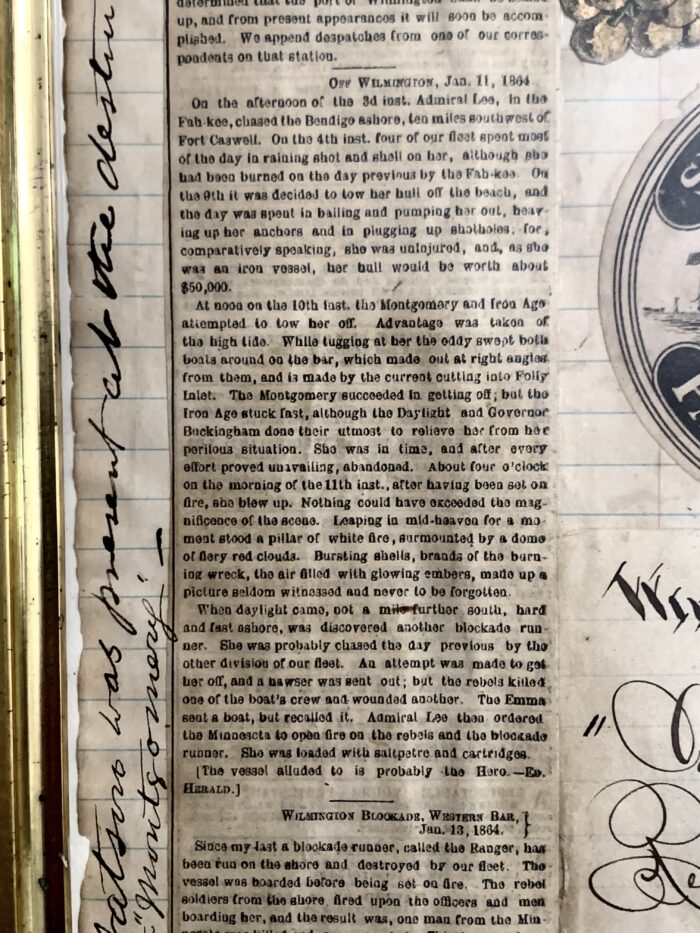 up, and from present appearances it will soon be accom-
plished. We append despatches from one of our corres-
pondents on that station.
OFF WILMINGTON, Jan. 11, 1864
On the afternoon of the 3d inst. Admiral Lee, in the
Fah-kee, chased the Bendigo ashore, ten miles southwest of
Fort Caswell. On the 4th inst. four of our fleet spent most
of the day in raining shot and shell on her, although she
had been burned on the day previous by the Fah-kee. On
the 9th it was decided to tow her hull off the beach, and
the day was spent in bailing and pumping her out, heav-
ing up her anchors and in plugging up shotholes, for,
comparatively speaking, she was uninjured, and, as she
was an iron vessel, her hull would be worth about
$50,000.
At noon on the 10th inst. the Montgomery and Iron Age
attempted to tow her off. Advantage was taken of
the high tide. While tugging at her the eddy swept both
boats around on the bar, which made out at right angles
from them, and is made by the current cutting into Folly
Inlet. The Montgomery succeeded in getting off; but the
Iron Age stuck fast, although the Daylight and Governor
Buckingham done their utmost to relieve her from her
perilous situation. She was in time, and after every
effort proved unavailing, abandoned. About four o'clock
on the morning of the 11th inst., after having been set on
fire, she blew up. Nothing could have exceeded the mag-
nificence of the scene. Leaping in mid-heaven for a mo-
ment stood a pillar of white fire, surmounted by a dome
of fiery red clouds. Bursting shells, brands of the burn-
ing wreck, the air filled with glowing embers, made up a
picture seldom witnessed and never to be forgotten.
When daylight came, not a mile further south, hard
and fast ashore, was discovered another blockade run-
ner. She was probably chased the day previous by the
other division of our fleet. An attempt was made to get
her off, and a hawser was sent out; but the rebels killed
one of the boat's crew and wounded another. The Emma
sent a boat, but recalled it. Admiral Lee then ordered
the Minnesota to open fire on the rebels and the blockade
runner. She was loaded with saltpetre and cartridges.
[The vessel alluded to is probably the Hero.—ED.
HERALD.]
WILMINGTON BLOCKADE, WESTERN BAR, }
Jan. 13, 1864. }
Since my last a blockade runner, called the Ranger, has
been run on the shore and destroyed by our fleet. The
vessel was boarded before being set on fire. The rebel
soldiers from the shore fired upon the officers and men
boarding her, and the result was, one man from the Min-
was present at the destru
"Montgomery" —